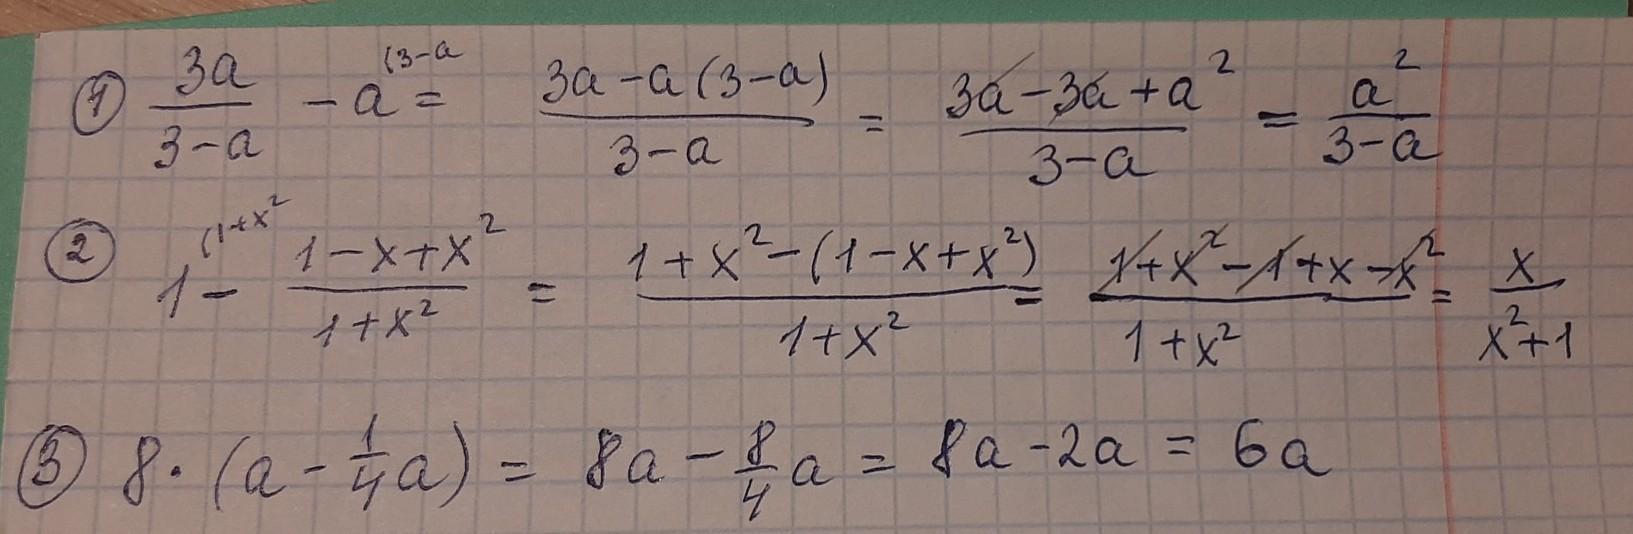 ① 3a/(3-a) - a^(3-a = (3a-a(3-a))/(3-a) = (3a-3a+a²)/(3-a) = a²/(3-a)
② 1^(1+x² - (1-x+x²)/(1+x²) = (1+x²-(1-x+x²))/(1+x²) = (1+x²-1+x-x²)/(1+x²) = x/(x²+1)
③ 8·(a - 1/4a) = 8a - 8/4a = 8a-2a = 6a